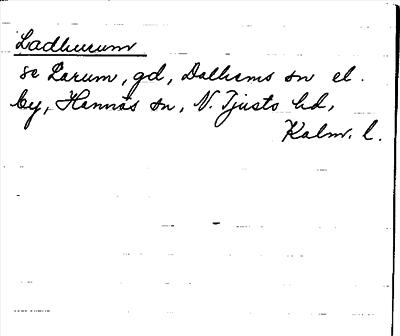 Ladhurum
se Larum, gd, Dalhems sn el.
by, Hannäs sn, N. Tjusts hd,
Kalm. l.